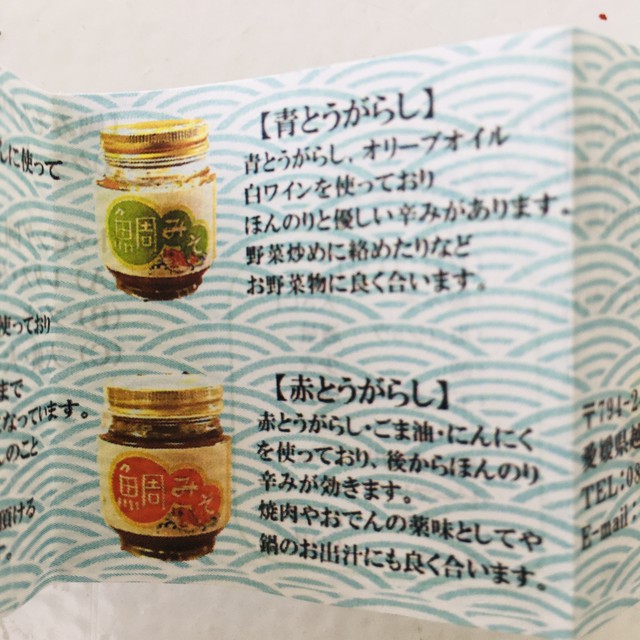 しに使って
使っており
まで
なっています。
のこと
頂ける
鯛みそ
【青とうがらし】
青とうがらし，オリーブオイル
白ワインを使っており
ほんのりと優しい辛みがあります。
野菜炒めに絡めたりなど
お野菜物に良く合います。
鯛みそ
【赤とうがらし】
赤とうがらし・ごま油・にんにく
を使っており、後からほんのり
辛みが効きます。
焼肉やおでんの薬味としてや
鍋のお出汁にも良く合います。
〒794-2
愛媛県
TEL:08
E-mail: